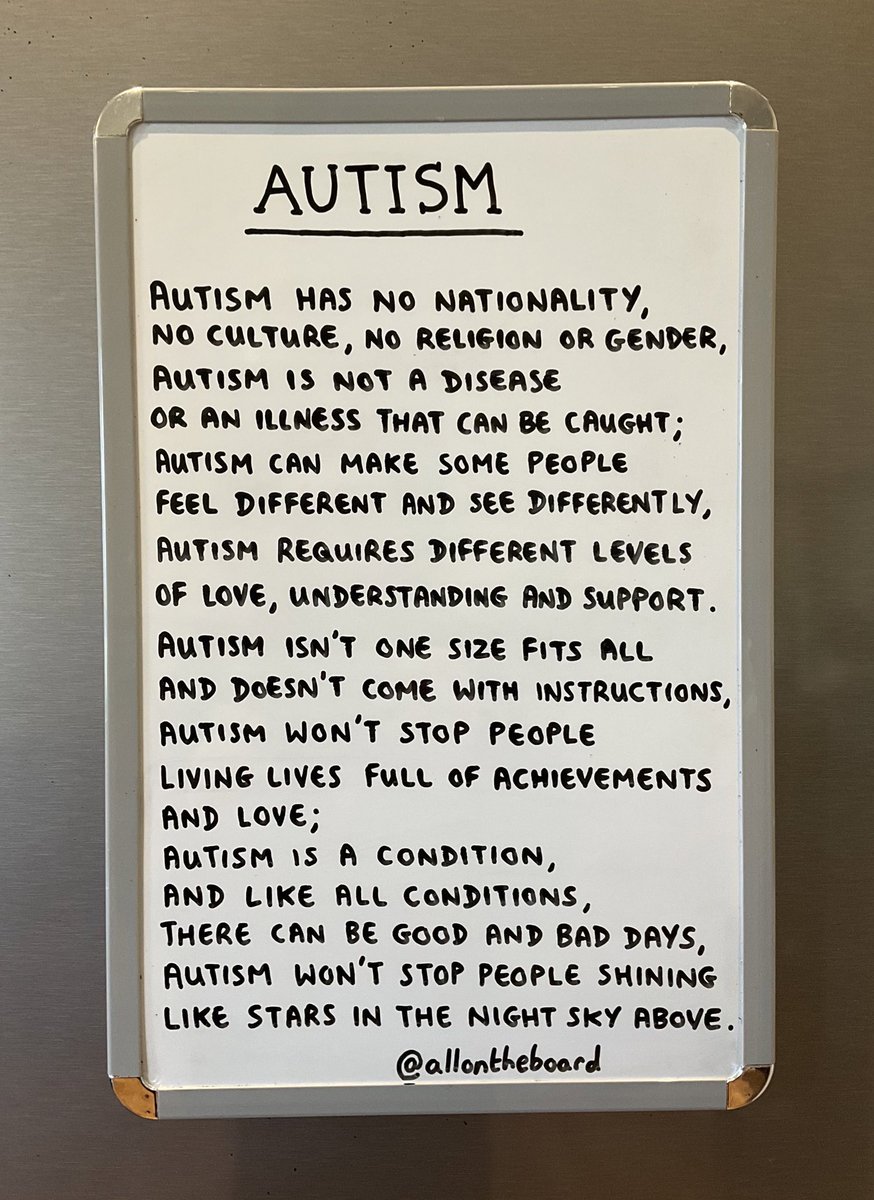 AUTISM
AUTISM HAS NO NATIONALITY,
NO CULTURE, NO RELIGION OR GENDER,
AUTISM IS NOT A DISEASE
OR AN ILLNESS THAT CAN BE CAUGHT;
AUTISM CAN MAKE SOME PEOPLE
FEEL DIFFERENT AND SEE DIFFERENTLY,
AUTISM REQUIRES DIFFERENT LEVELS
OF LOVE, UNDERSTANDING AND SUPPORT.
AUTISM ISN'T ONE SIZE FITS ALL
AND DOESN'T COME WITH INSTRUCTIONS,
AUTISM WON'T STOP PEOPLE
LIVING LIVES FULL OF ACHIEVEMENTS
AND LOVE;
AUTISM IS A CONDITION,
AND LIKE ALL CONDITIONS,
THERE CAN BE GOOD AND BAD DAYS,
AUTISM WON'T STOP PEOPLE SHINING
LIKE STARS IN THE NIGHT SKY ABOVE.
@allontheboard